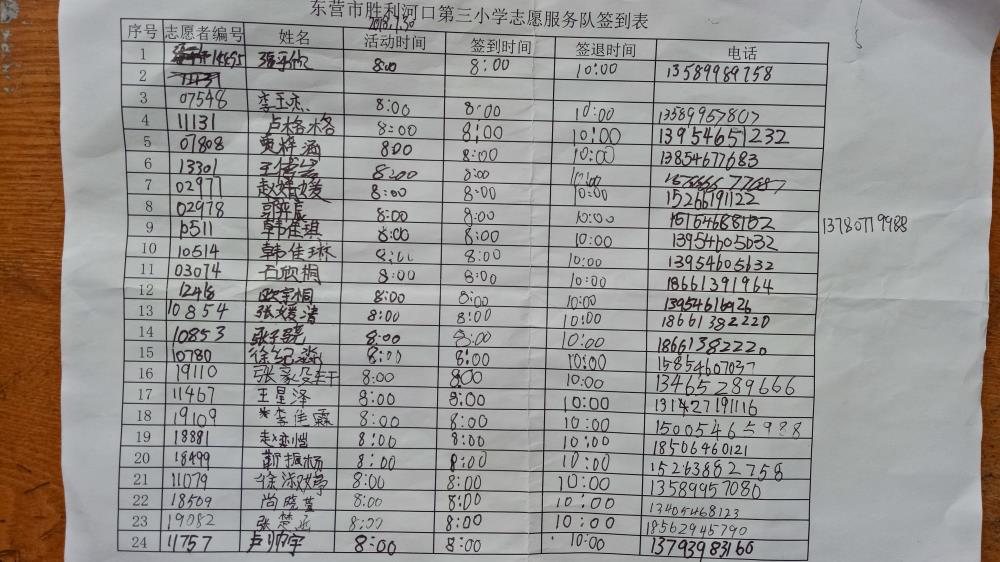 东营市胜利河口第三小学志愿服务队签到表
序号 志愿者编号 姓名 活动时间 签到时间 签退时间 电话
1 14495 8:00 8:00 10:00 13589989758
2
3 07548 李玉杰 8:00 8:00 10:00 13589957807
4 11131 卢格格 8:00 8:00 10:00 13954651232
5 07808 贾梓涵 8:00 8:00 10:00 13854677683
6 13301 8:00 8:00 10:00
7 02977 赵婧媛 8:00 8:00 10:00 15266191122
8 02978 郭弈辰 8:00 8:00 10:00 13780779988
9 10511 韩佳琪 8:00 8:00 10:00 13954605632
10 10514 韩佳琳 8:00 8:00 10:00 13954605632
11 03074 石欣桐 8:00 8:00 10:00 18661391964
12 8:00 8:00 10:00
13 10854 张媛清 8:00 8:00 10:00 18661382220
14 10853 8:00 8:00 10:00 18661382220
15 10780 徐纪淼 8:00 8:00 10:00 15854607037
16 19110 8:00 8:00 10:00 13465289666
17 11467 王星泽 8:00 8:00 10:00 131427191116
18 19109 *李佳霖 8:00 8:00 10:00 15005465988
19 18881 赵奕恺 8:00 8:00 10:00 18506460121
20 18499 靳振杨 8:00 8:00 10:00 15263882758
21 11079 8:00 8:00 10:00 13589957080
22 18509 尚晓萱 8:00 8:00 10:00 13405468123
23 19082 8:00 8:00 10:00 18562945790
24 11757 卢帅宇 8:00 8:00 10:00 13793983160